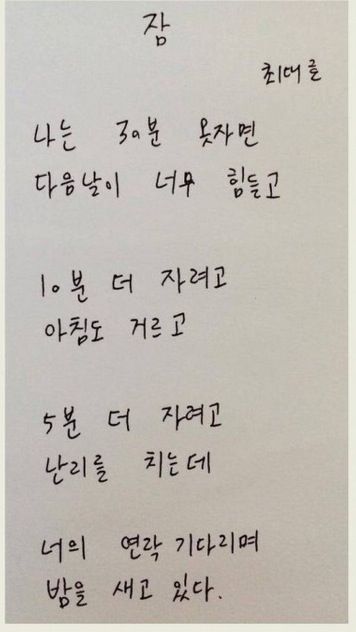 잠
최대호
나는 30분 못자면
다음날이 너무 힘들고
10분 더 자려고
아침도 거르고
5분 더 자려고
난리를 치는데
너의 연락 기다리며
밤을 새고 있다.